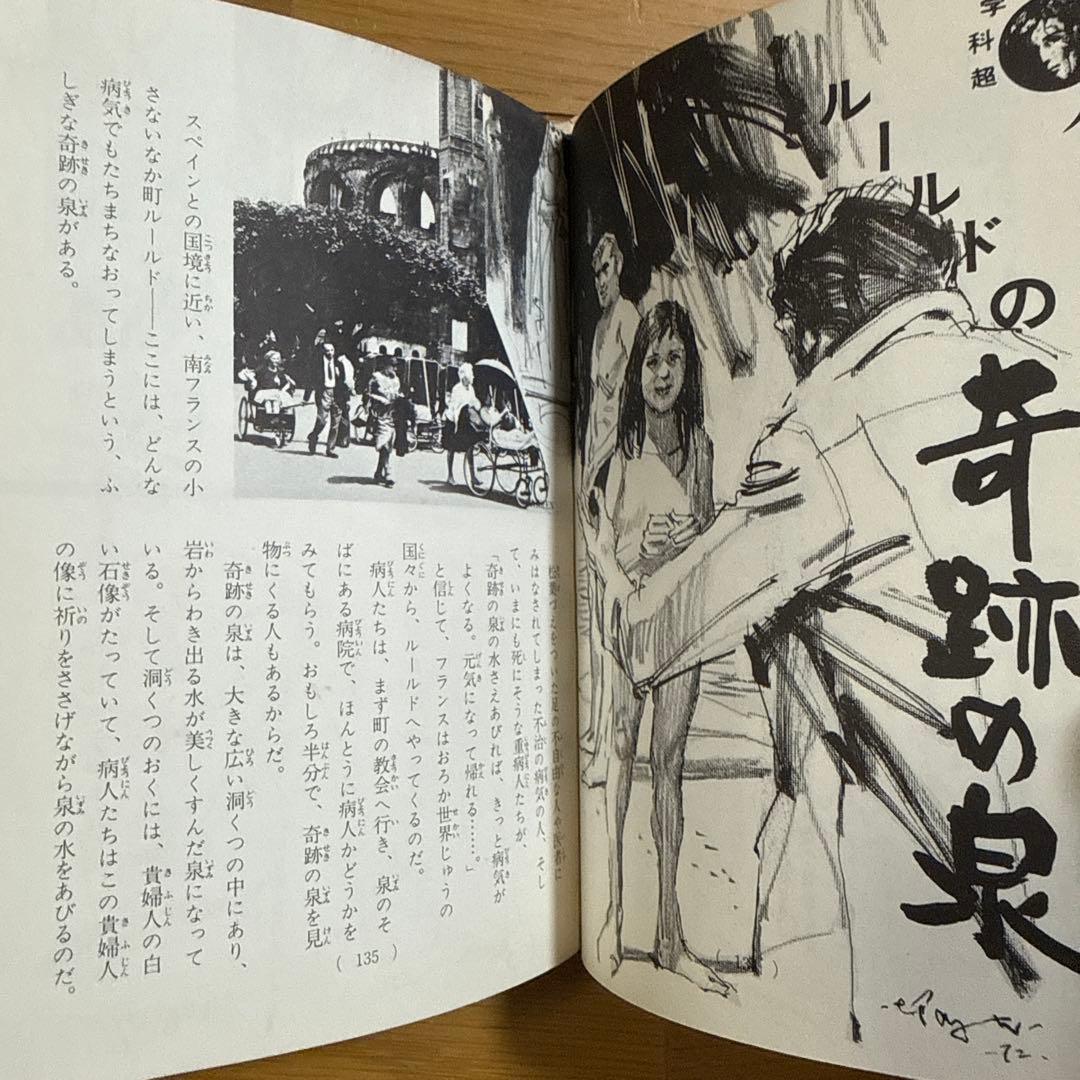 学科超
ルールドの奇跡の泉
-72.
スペインとの国境に近い、南フランスの小
さないなか町ルールド――ここには、どんな
病気でもたちまちなおってしまうという、ふ
しぎな奇跡の泉がある。
松葉づえをついた足の不自由な人や、医者に
みはなされてしまった不治の病気の人、そし
て、いまにも死にそうな重病人たちが、
「奇跡の泉の水さえあびれば、きっと病気が
よくなる。元気になって帰れる……。」
と信じて、フランスはおろか世界じゅうの
国々から、ルールドへやってくるのだ。
病人たちは、まず町の教会へ行き、泉のそ
ばにある病院で、ほんとうに病人かどうかを
みてもらう。おもしろ半分で、奇跡の泉を見
物にくる人もあるからだ。
奇跡の泉は、大きな広い洞くつの中にあり、
岩からわき出る水が美しくすんだ泉になって
いる。そして洞くつのおくには、貴婦人の白
い石像がたっていて、病人たちはこの貴婦人
の像に祈りをささげながら泉の水をあびるのだ。
( 135 )